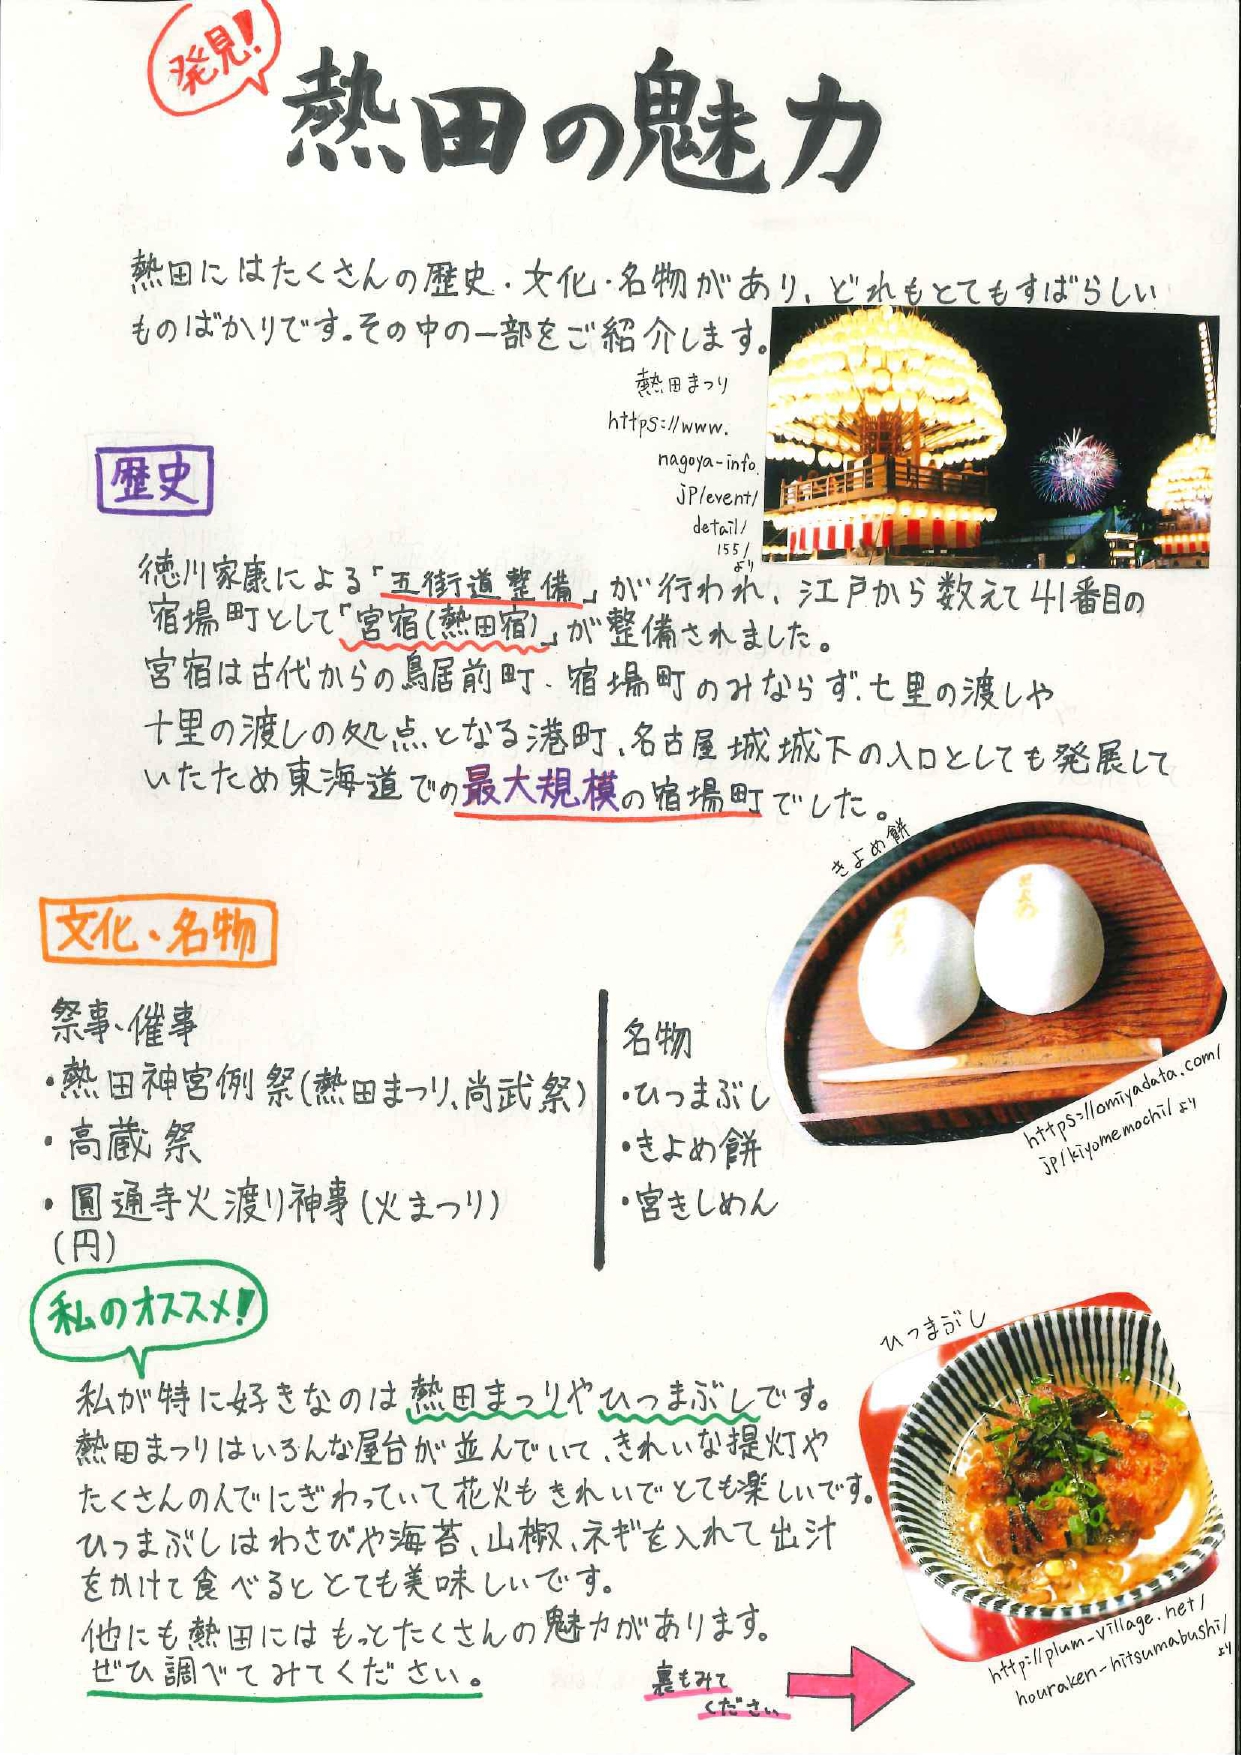 発見!
熱田の魅力
熱田にはたくさんの歴史・文化・名物があり、どれもとてもすばらしい
ものばかりです。その中の一部をご紹介します。
熱田まつり
https://www.
nagoya-info.
jp/event/
detail/
155/
より
歴史
徳川家康による「五街道整備」が行われ、江戸から数えて41番目の
宿場町として「宮宿(熱田宿)」が整備されました。
宮宿は古代からの鳥居前町、宿場町のみならず、七里の渡しや
十里の渡しの処点となる港町、名古屋城城下の入口としても発展して
いたため東海道での最大規模の宿場町でした。
きよめ餅
きよめ
https://omiyadata.com/
jp/kiyomemochi/より
文化・名物
祭事・催事
・熱田神宮例祭(熱田まつり、尚武祭)
・高蔵祭
・圓通寺火渡り神事(火まつり)
(円)
名物
・ひつまぶし
・きよめ餅
・宮きしめん
私のオススメ!
ひつまぶし
私が特に好きなのは熱田まつりやひつまぶしです。
熱田まつりはいろんな屋台が並んでいて、きれいな提灯や
たくさんの人でにぎわっていて花火もきれいでとても楽しいです。
ひつまぶしはわさびや海苔、山椒、ネギを入れて出汁
をかけて食べるととても美味しいです。
他にも熱田にはもっとたくさんの魅力があります。
ぜひ調べてみてください。
http://plum-village.net/
houraken-hitsumabushi/
より
裏もみて
ください